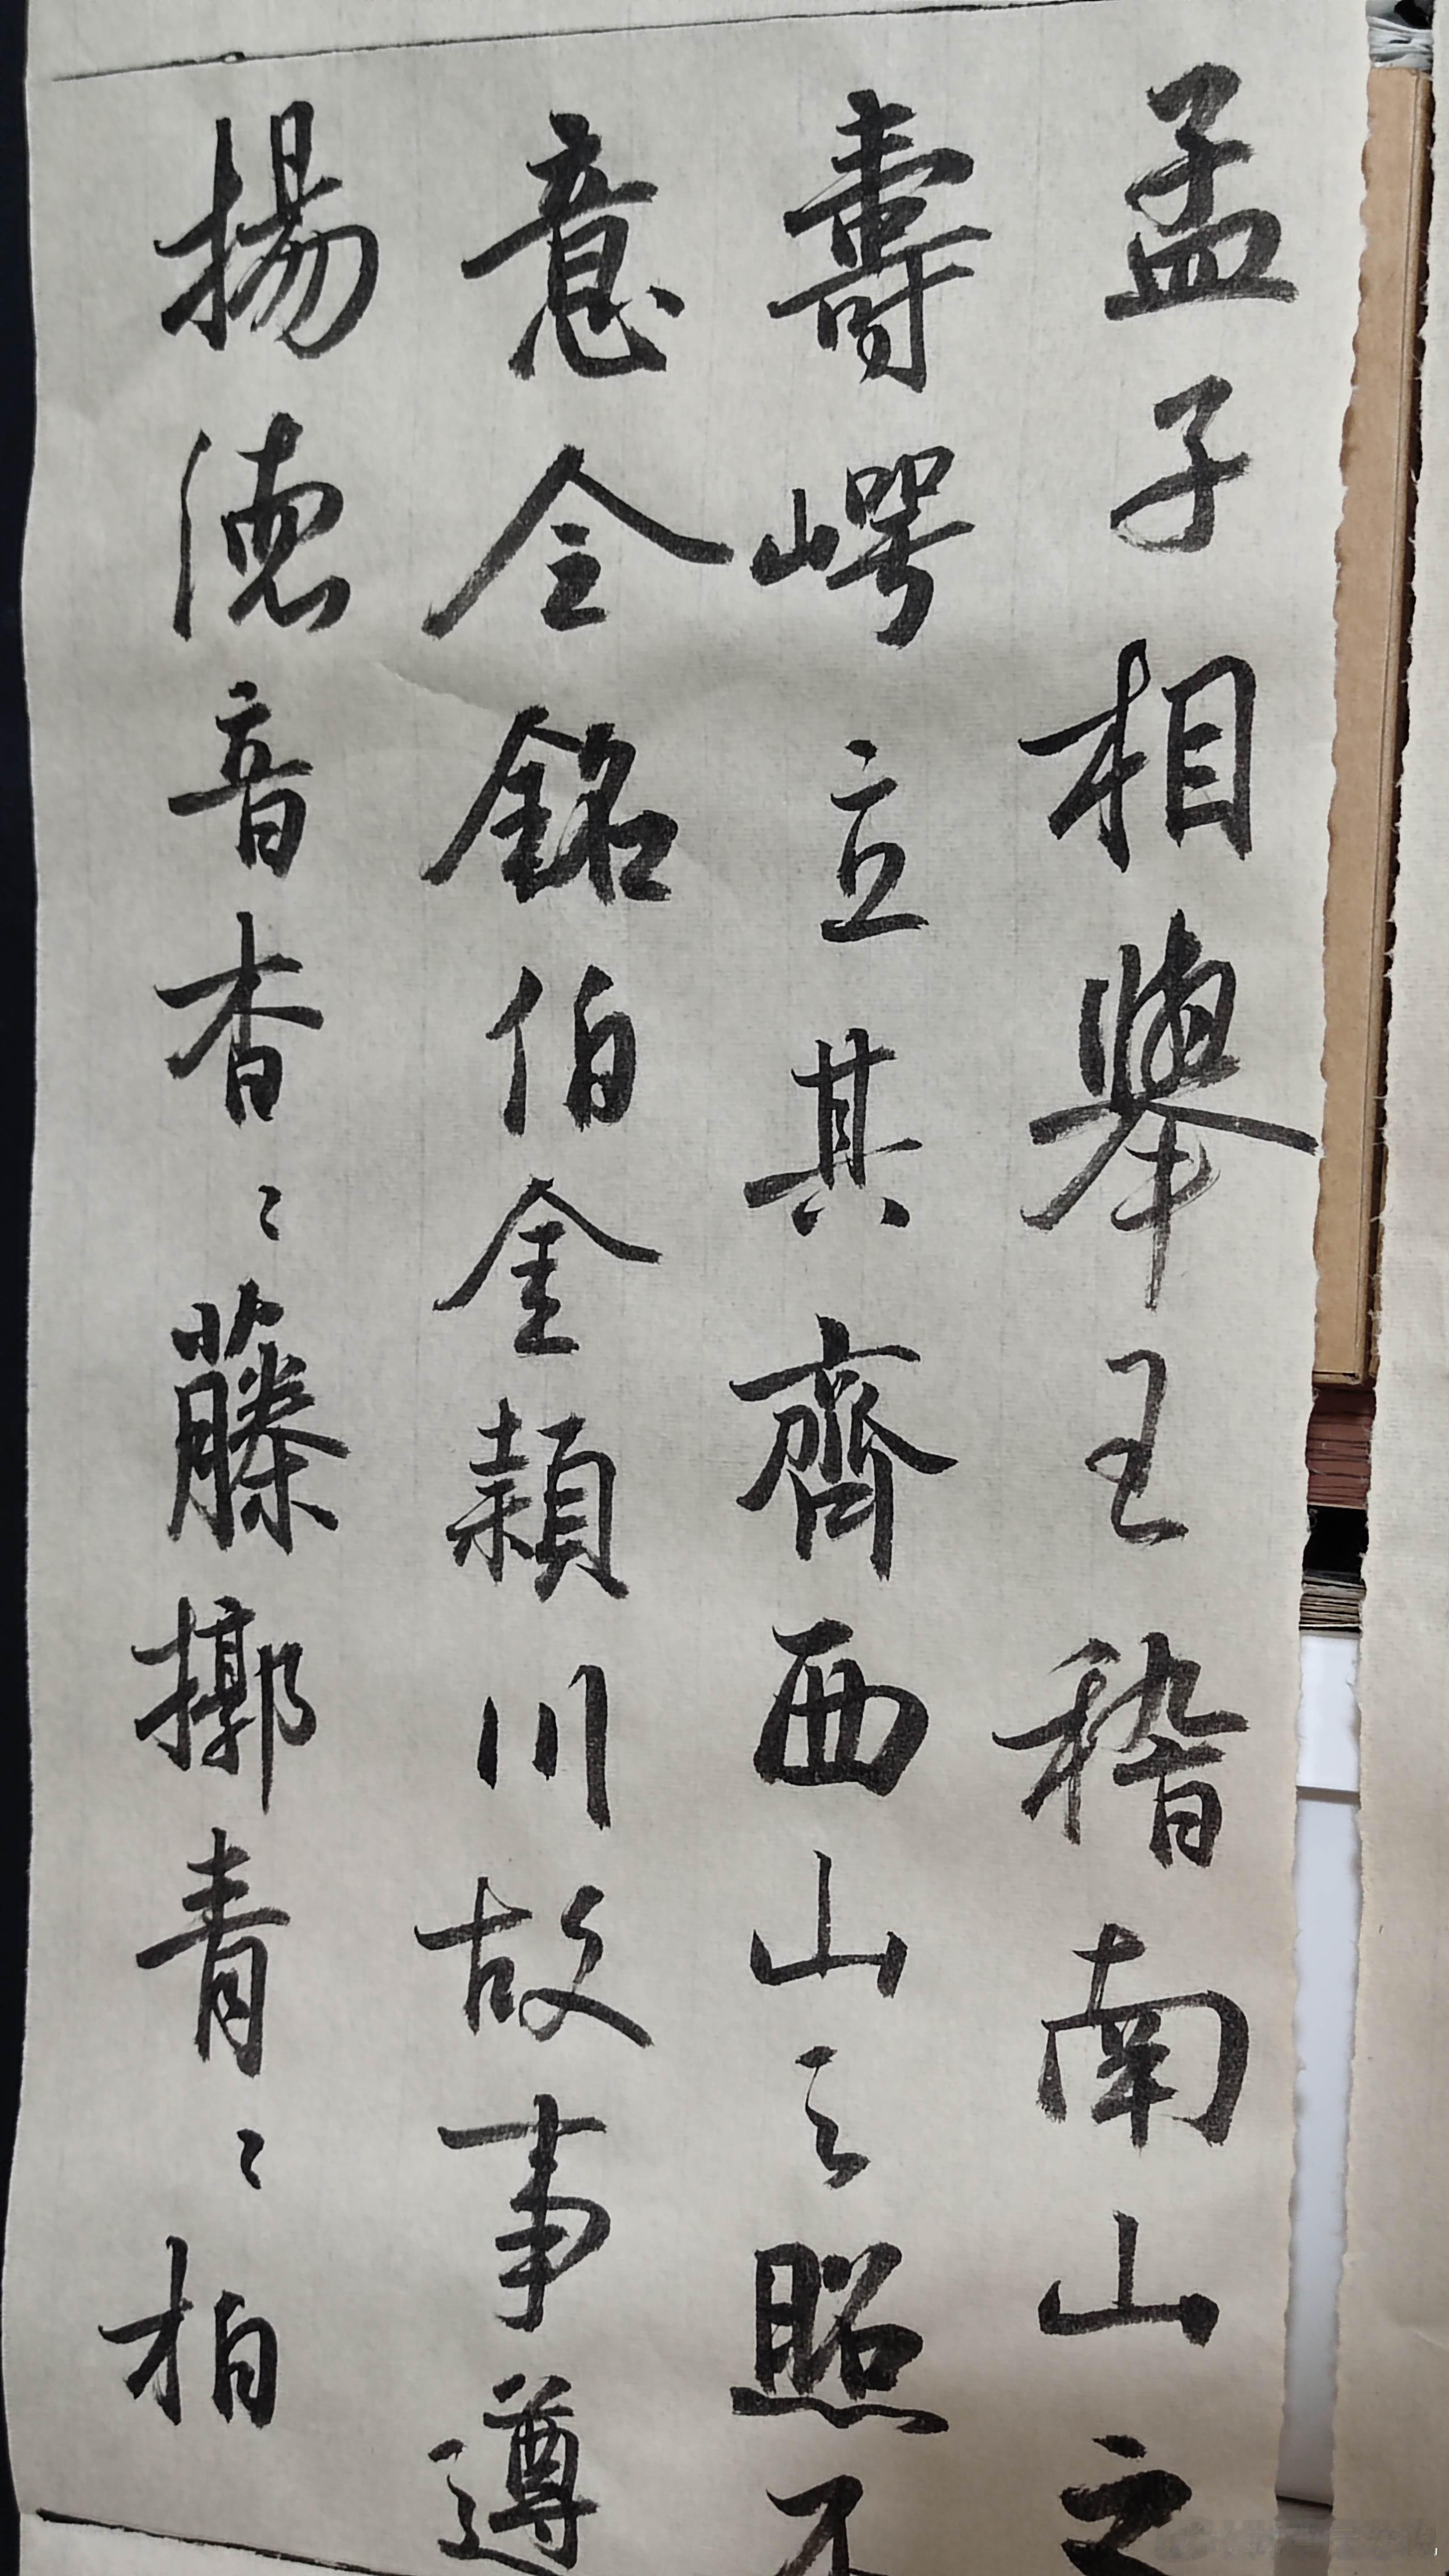 孟子相舉王稽南山之
壽崿立其齊西山之照不
意令銘伯金穎川故事遵
揚德音杳〻藤擲青〻柏